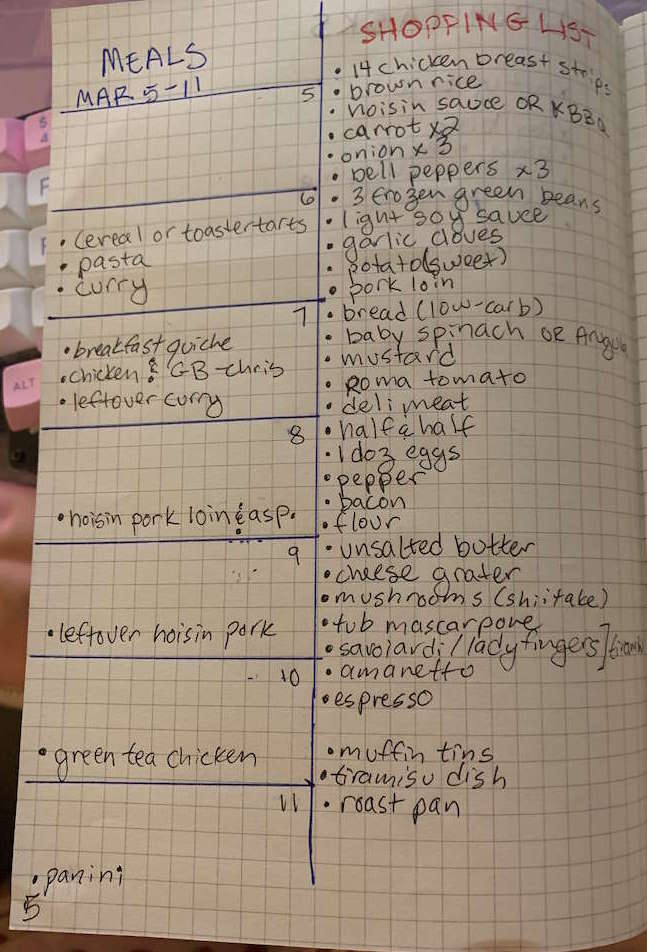 MEALS
MAR 5-11
5
6
• cereal or toastertarts
• pasta
• curry
7
• breakfast quiche
• chicken & GB - chris
• leftover curry
8
• hoisin pork loin & asp.
9
• leftover hoisin pork
10
• green tea chicken
11
• panini
5
SHOPPING LIST
• 14 chicken breast strips
• brown rice
• hoisin sauce OR KBBQ
• carrot x2
• onion x 3
• bell peppers x3
• 3 frozen green beans
• light soy sauce
• garlic cloves
• potato (sweet)
• pork loin
• bread (low-carb)
• baby spinach OR Arugula
• mustard
• Roma tomato
• deli meat
• half & half
• 1 doz eggs
• pepper
• bacon
• flour
• unsalted butter
• cheese grater
• mushrooms (shiitake)
• tub mascarpone
• savoiardi/ladyfingers]
• amaretto
• espresso
• muffin tins
• tiramisu dish
• roast pan
ALT